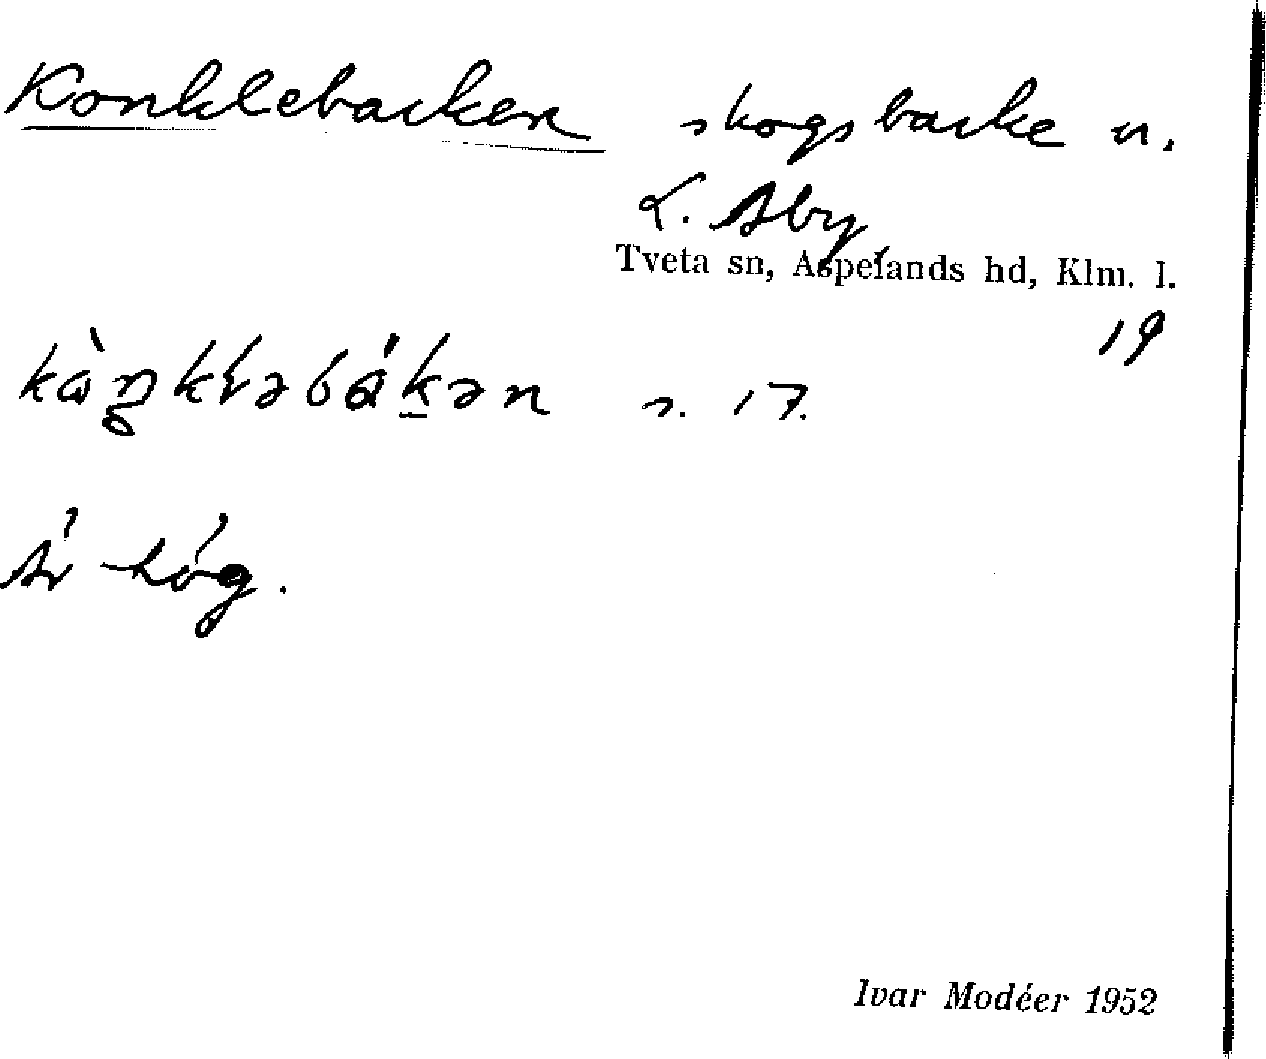 Konklebacken skogsbacke u.
L. Åby
Tveta sn, Aspelands hd, Klm. l.
19
kàŋkləbákən s. 17.
Är hög.
Ivar Modéer 1952